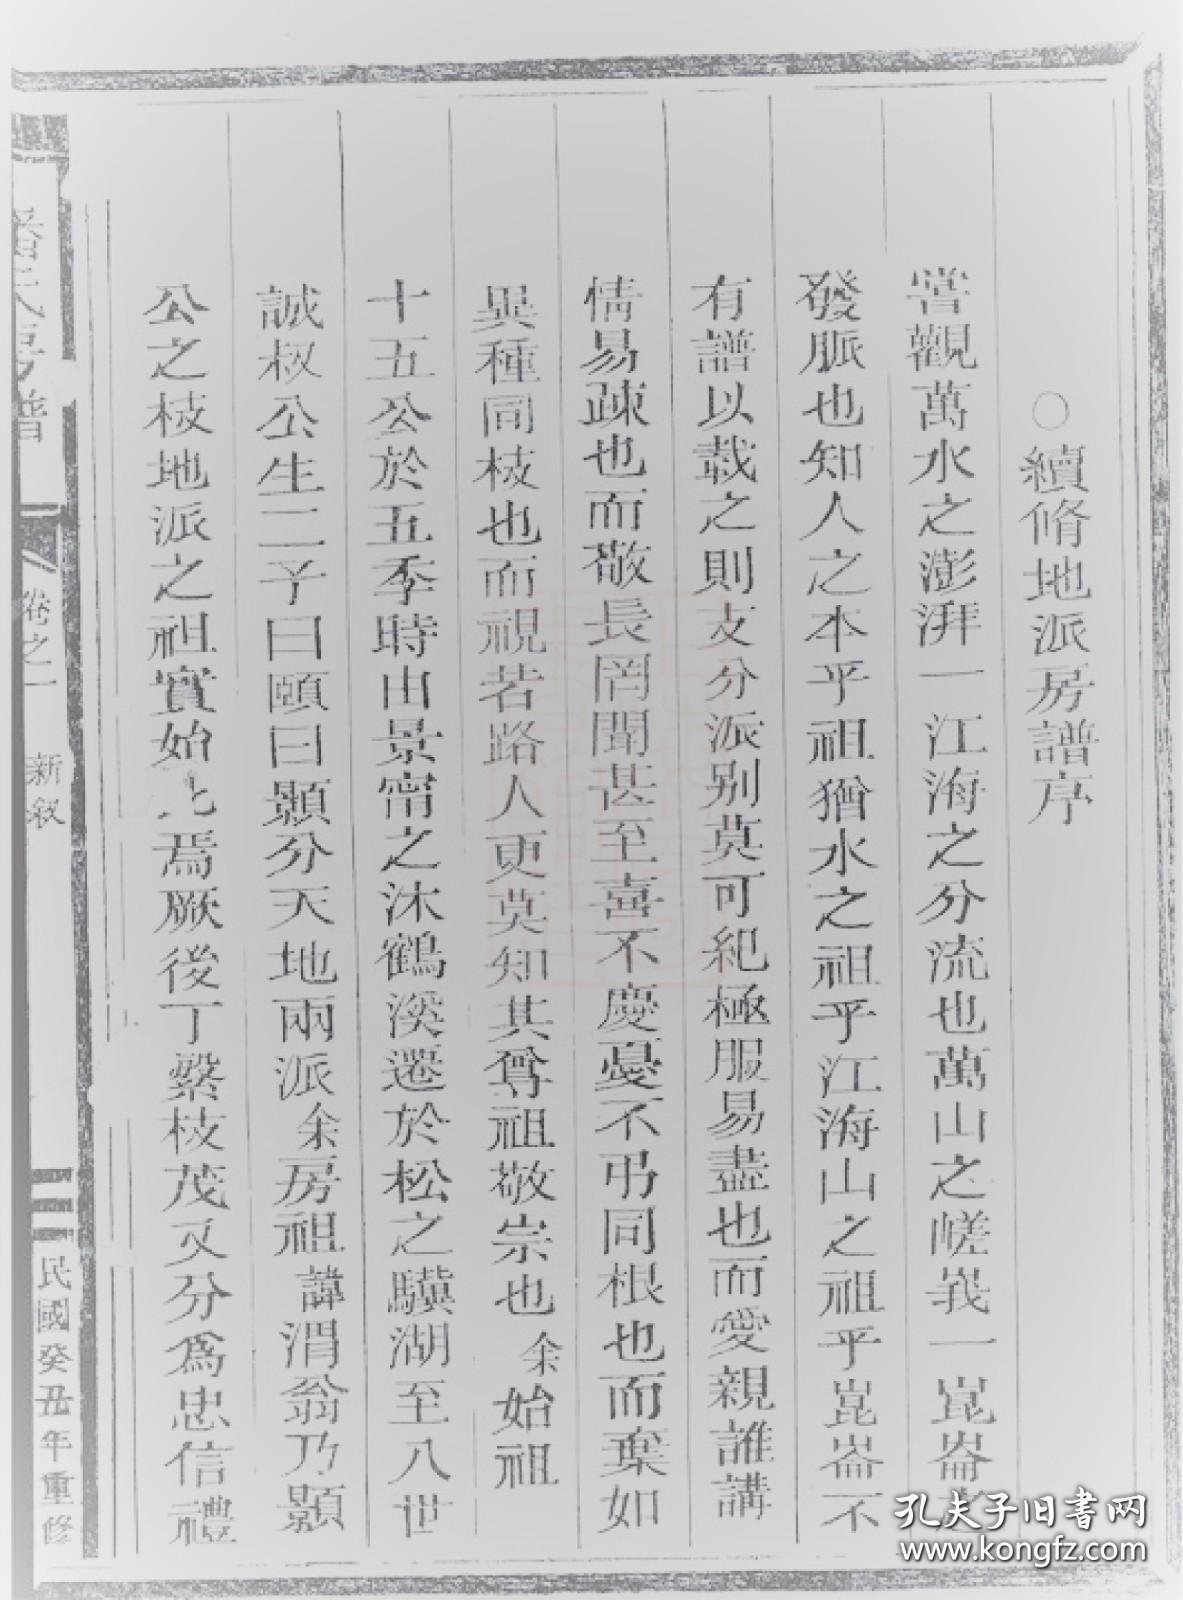 ○續脩地派房譜序
嘗觀萬水之澎湃一江海之分流也萬山之嵯峩一崑崙之
發脈也知人之本乎祖猶水之祖乎江海山之祖乎崑崙不
有譜以載之則支分派别莫可紀極服易盡也而愛親誰講
情易疎也而敬長罔聞甚至喜不慶憂不弔同根也而棄如
異種同枝也而視若路人更莫知其尊祖敬宗也余始祖
十五公於五季時由景甯之沐鶴溪遷於松之驥湖至八世
誠叔公生二子曰頤曰顥分天地兩派余房祖諱渭翁乃顥
公之枝地派之祖實始此焉厥後丁繁枝茂又分爲忠信禮
潘氏房譜
卷之一
新敘
民國癸丑年重修
孔夫子旧书网
www.kongfz.com